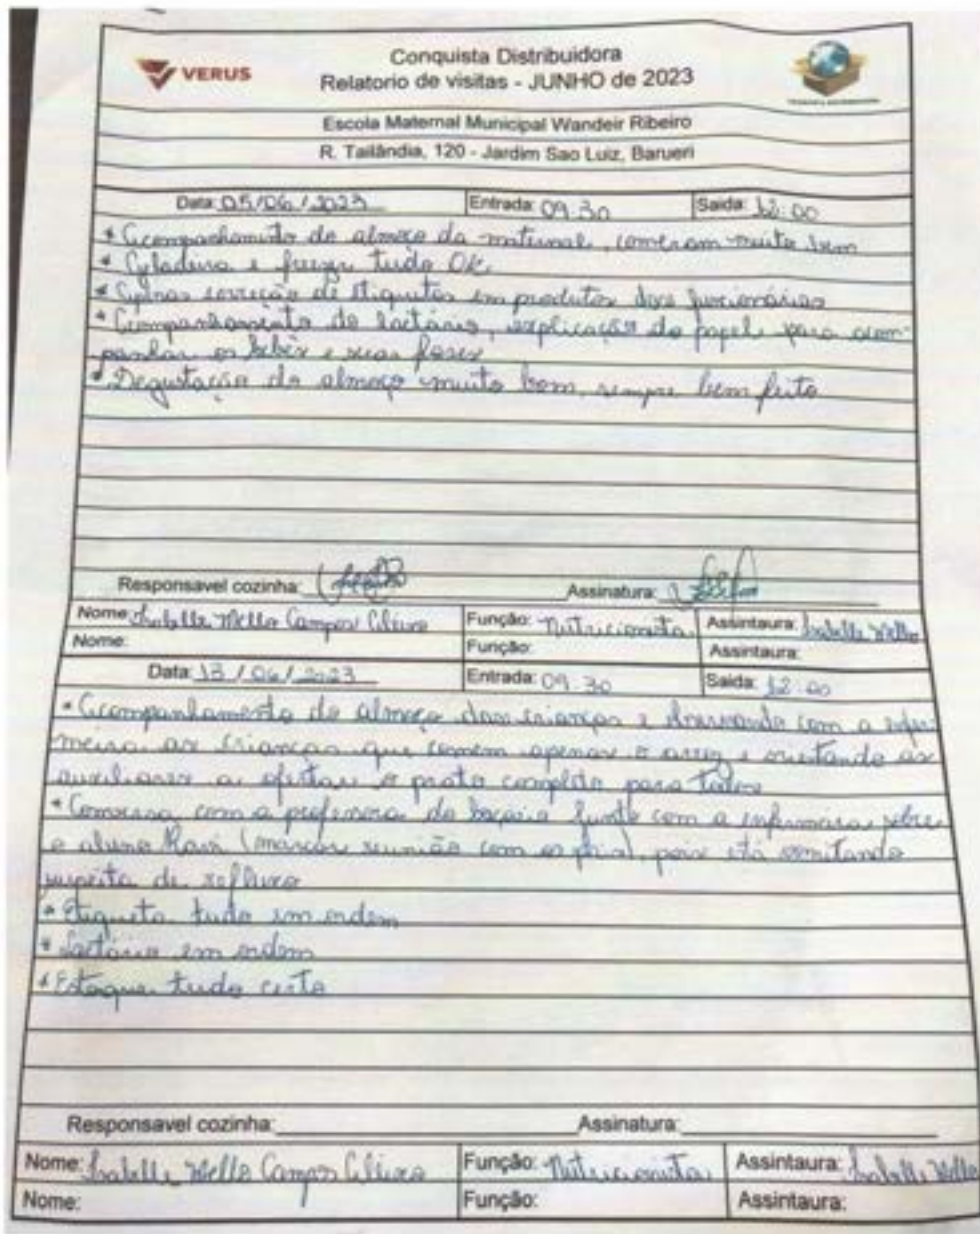 VERUS
Conquista Distribuidora
Relatorio de visitas - JUNHO de 2023
Escola Maternal Municipal Wandeir Ribeiro
R. Tailândia, 120 - Jardim Sao Luiz, Barueri
Data: 05/06/2023 Entrada: 09:30 Saida: 12:00
* Acompanhamento do almoço da maternal, comeram muito bem
* Geladeira e freezer tudo OK
* Apenas correção de etiquetas em produtos dos funcionários
* Acompanhamento do lactário, explicação do papel para acom-
panhar os bebês e suas fases
* Degustação do almoço muito bom, sempre bem feito
Responsavel cozinha: Assinatura:
Nome: Isabelle Mello Campos Função: Nutricionista Assintaura: Isabelle Mello
Nome: Função: Assintaura:
Data: 13/06/2023 Entrada: 09:30 Saida: 12:00
* Acompanhamento do almoço das crianças e com a enfer
meira as crianças que comem apenas o arroz e orientando as
auxiliares a ofertar o prato completo para todos
* Conversa com a professora do junto com a enfermeira sobre
o aluno Ravi (marcar reunião com os pais), pois está vomitando
suspeita de refluxo
* Etiqueta tudo em ordem
* Lactário em ordem
* Estoque tudo certo
Responsavel cozinha: Assinatura:
Nome: Isabelle Mello Campos Função: Nutricionista Assintaura: Isabelle Mello
Nome: Função: Assintaura: